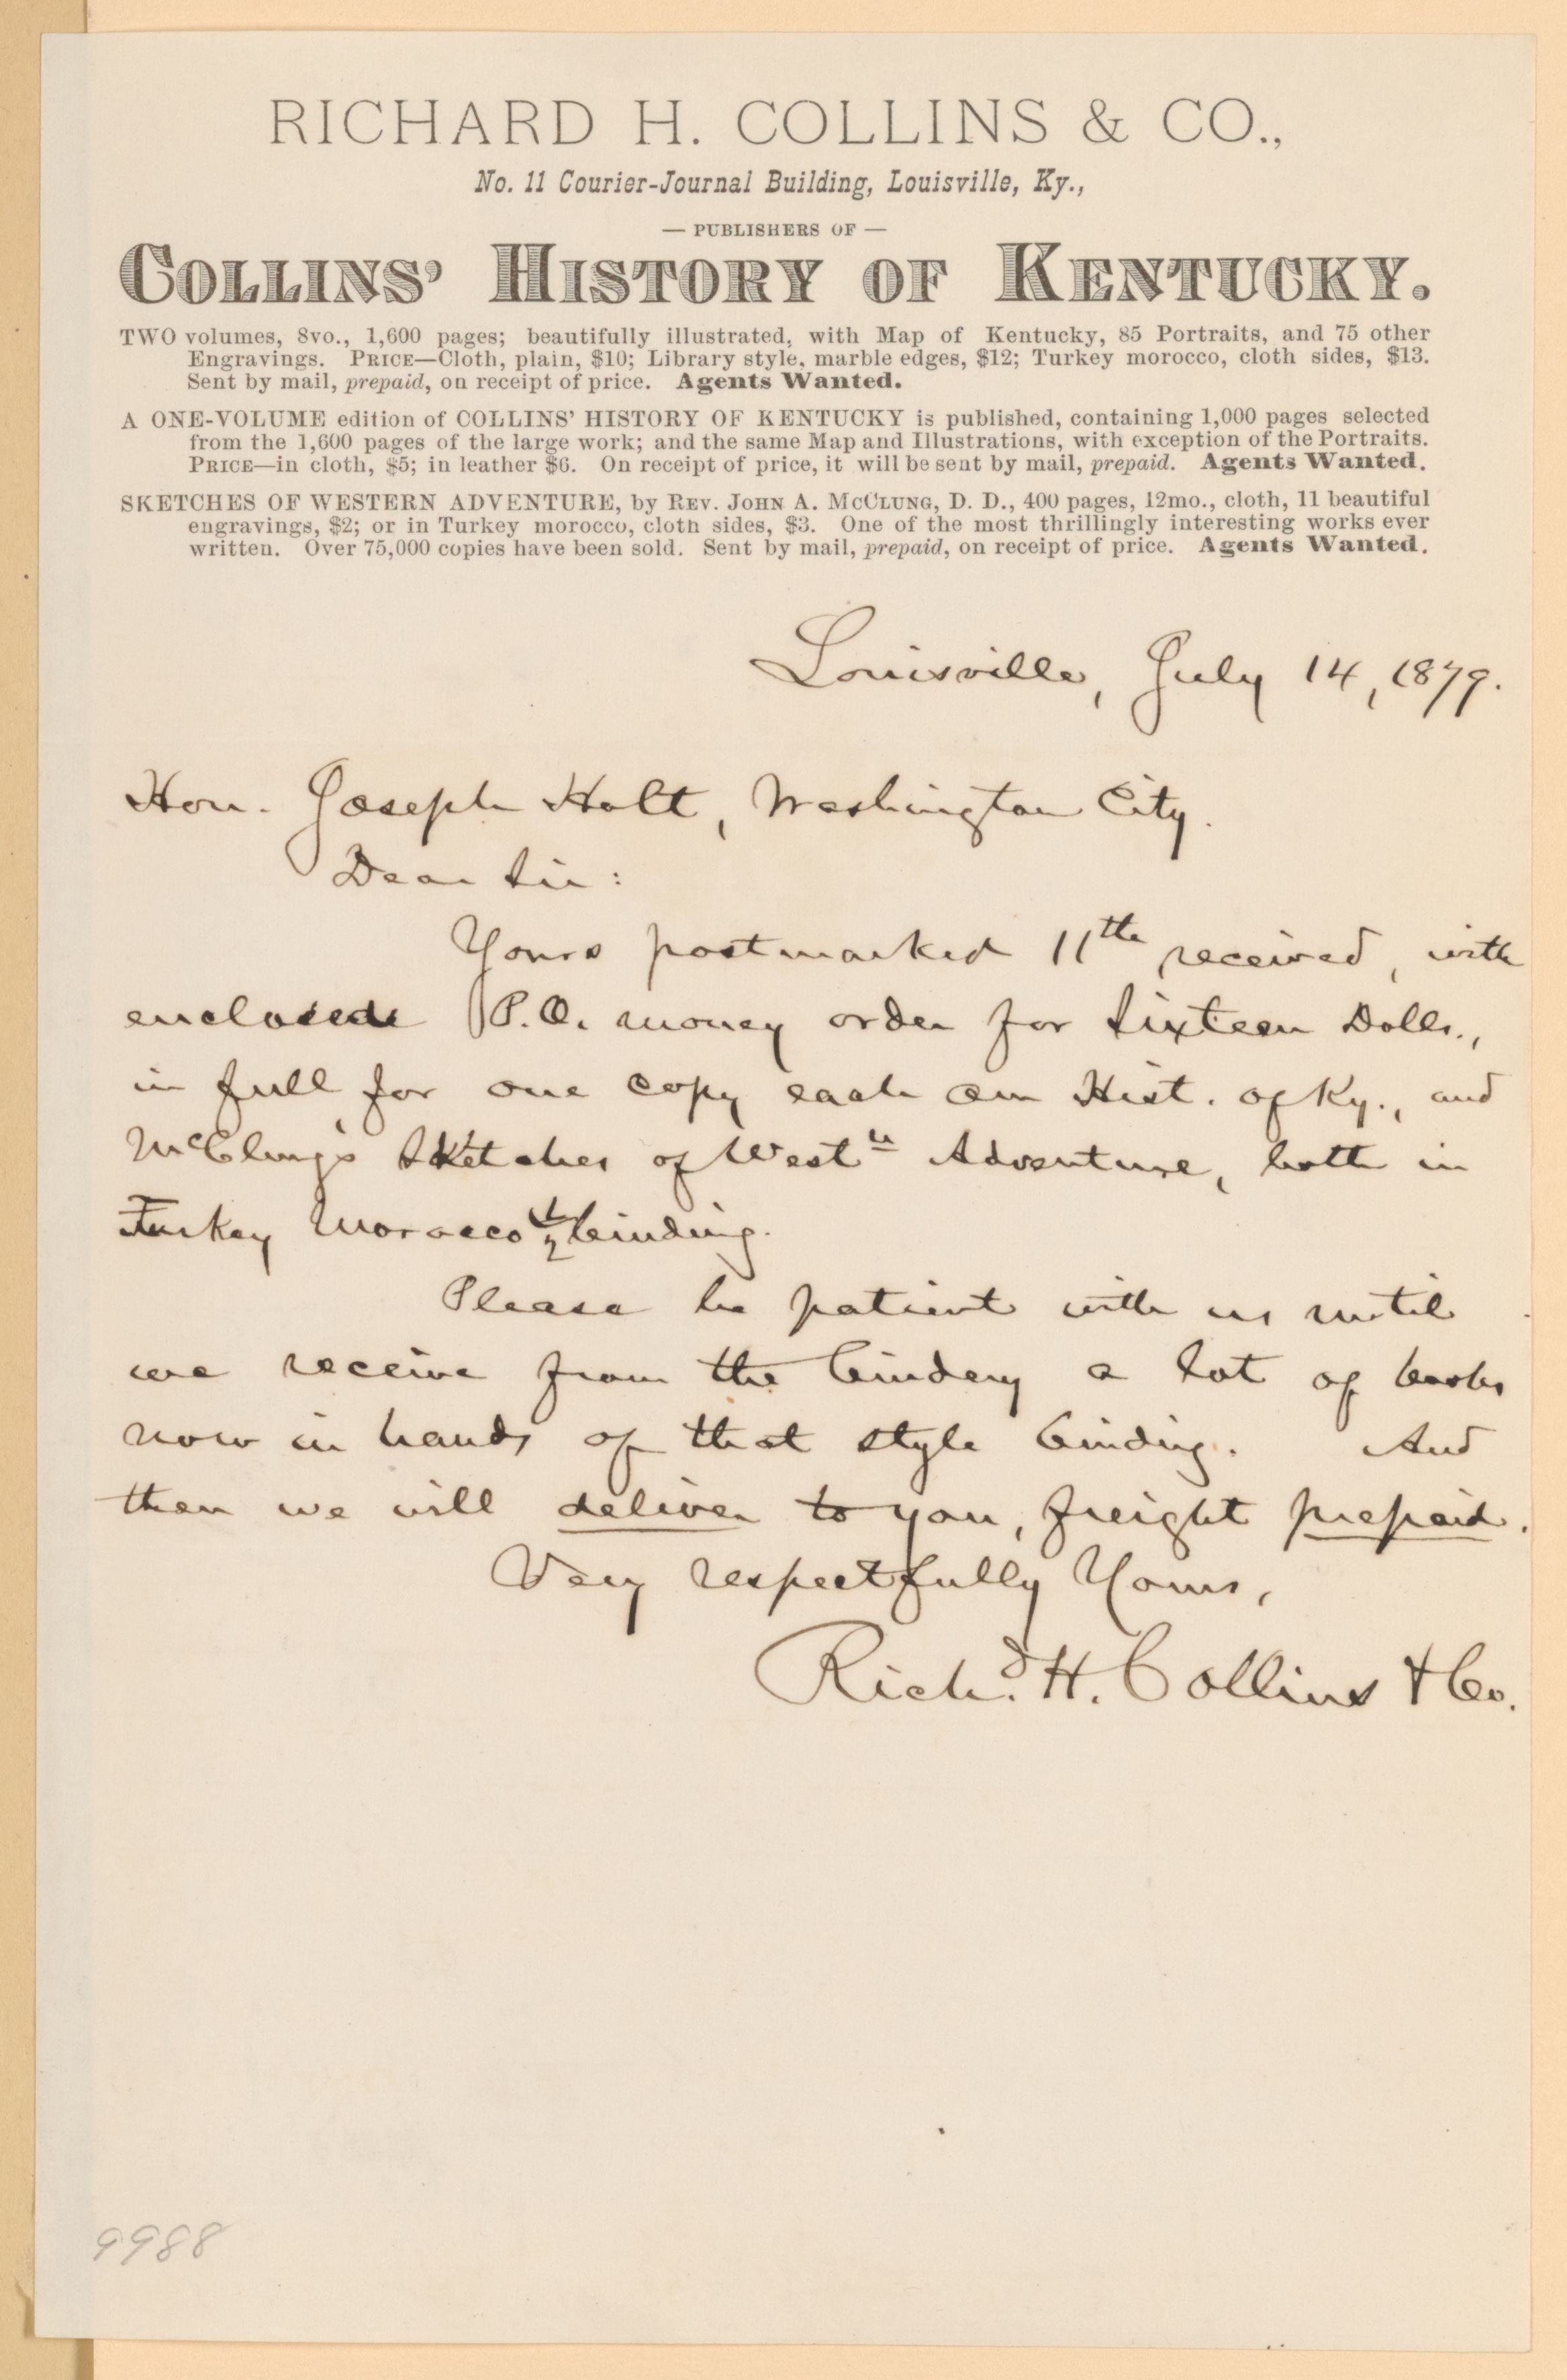 RICHARD H. COLLINS & CO.,
No. 11 Courier-Journal Building, Louisville, Ky.,
— PUBLISHERS OF —
COLLINS' HISTORY OF KENTUCKY.
TWO volumes, 8vo., 1,600 pages; beautifully illustrated, with Map of Kentucky, 85 Portraits, and 75 other
Engravings. PRICE—Cloth, plain, $10; Library style, marble edges, $12; Turkey morocco, cloth sides, $13.
Sent by mail, prepaid, on receipt of price. Agents Wanted.
A ONE-VOLUME edition of COLLINS' HISTORY OF KENTUCKY is published, containing 1,000 pages selected
from the 1,600 pages of the large work; and the same Map and Illustrations, with exception of the Portraits.
PRICE—in cloth, $5; in leather $6. On receipt of price, it will be sent by mail, prepaid. Agents Wanted.
SKETCHES OF WESTERN ADVENTURE, by REV. JOHN A. MCCLUNG, D. D., 400 pages, 12mo., cloth, 11 beautiful
engravings, $2; or in Turkey morocco, cloth sides, $3. One of the most thrillingly interesting works ever
written. Over 75,000 copies have been sold. Sent by mail, prepaid, on receipt of price. Agents Wanted.
Louisville, July 14, 1879.
Hon. Joseph Holt, Washington City.
Dear Sir:
Yours postmarked 11th received, with
enclosed P.O. money order for Sixteen Dolls.,
in full for one copy each our Hist. of Ky., and
McClung's Sketches of Westn Adventure, both in
Turkey Morocco ½ binding.
Please be patient with us until
we receive from the bindery a lot of books
now in hands of that style binding. And
then we will deliver to you, freight prepaid.
Very respectfully Yours,
Richd. H. Collins & Co.
9988